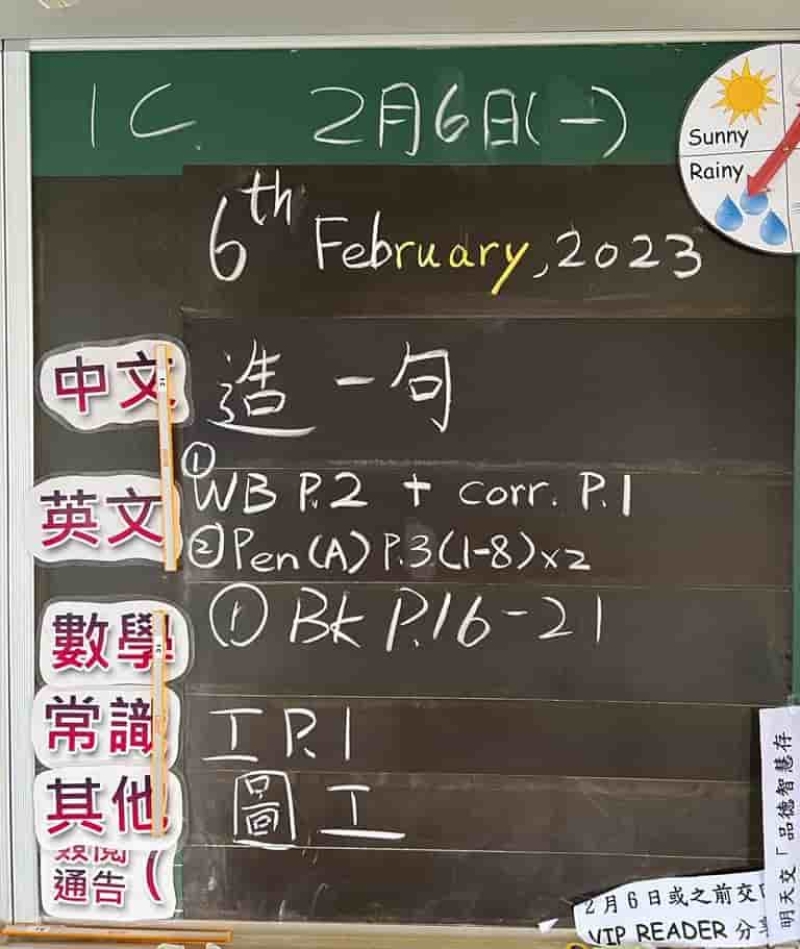 1C. 2月6日(一)
Sunny
Rainy
6th February, 2023
中文 造一句
英文 ① WB P.2 + corr. P.1
② Pen(A) P.3(1-8)×2
數學 ① Bk P.16-21
常識 工 P.1
其他 圖工
簽閱
通告 (
2月6日或之前交
VIP READER 分享
明天交「品德智慧存